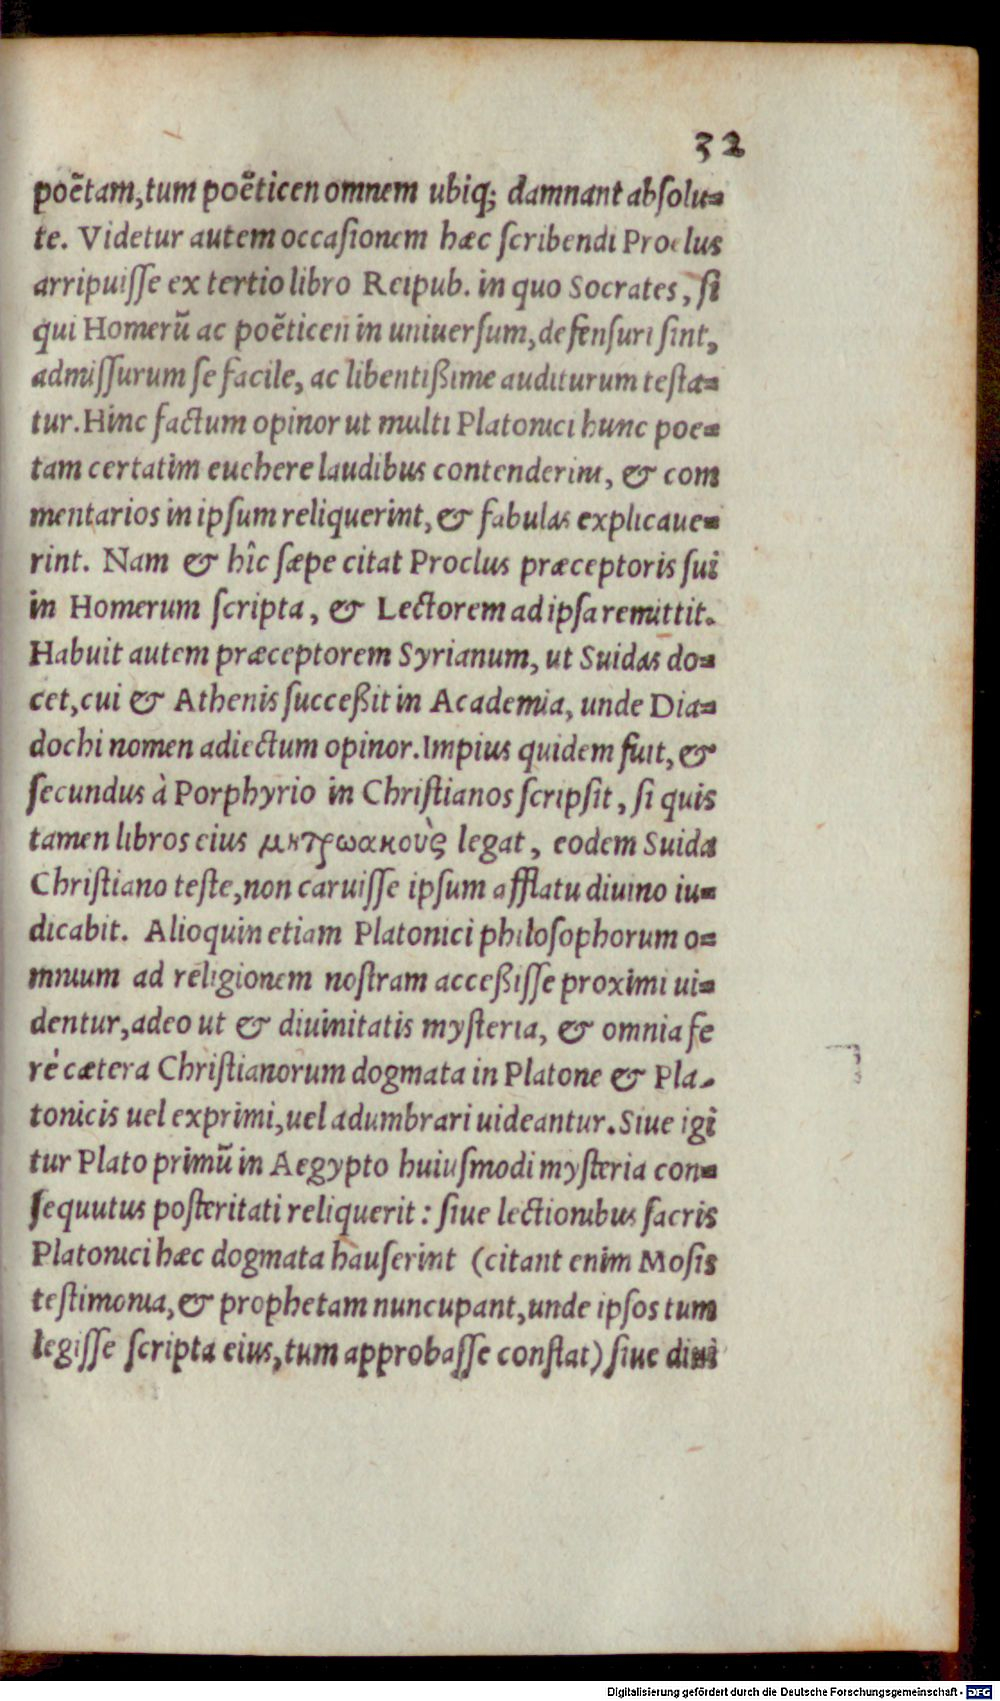 32
poẽtam, tum poẽticen omnem ubiq; damnant absolu-
te. Videtur autem occasionem hæc scribendi Proclus
arripuisse ex tertio libro Reipub. in quo Socrates, si
qui Homerũ ac poẽticen in uniuersum, defensuri sint,
admissurum se facile, ac libentißime auditurum testa-
tur. Hinc factum opinor ut multi Platonici hunc poe-
tam certatim euehere laudibus contenderint, & com
mentarios in ipsum reliquerint, & fabulas explicaue-
rint. Nam & hîc sæpe citat Proclus præceptoris sui
in Homerum scripta, & Lectorem ad ipsa remittit.
Habuit autem præceptorem Syrianum, ut Suidas do-
cet, cui & Athenis succeßit in Academia, unde Dia-
dochi nomen adiectum opinor. Impius quidem fuit, &
secundus à Porphyrio in Christianos scripsit, si quis
tamen libros eius μητρωακοὺς legat, eodem Suida
Christiano teste, non caruisse ipsum afflatu diuino iu-
dicabit. Alioquin etiam Platonici philosophorum o-
mnium ad religionem nostram acceßisse proximi ui-
dentur, adeo ut & diuinitatis mysteria, & omnia fe
rè cætera Christianorum dogmata in Platone & Pla-
tonicis uel exprimi, uel adumbrari uideantur. Siue igi
tur Plato primũ in Aegypto huiusmodi mysteria con-
sequutus posteritati reliquerit: siue lectionibus sacris
Platonici hæc dogmata hauserint (citant enim Mosis
testimonia, & prophetam nuncupant, unde ipsos tum
legisse scripta eius, tum approbasse constat) siue diui
Digitalisierung gefördert durch die Deutsche Forschungsgemeinschaft - DFG